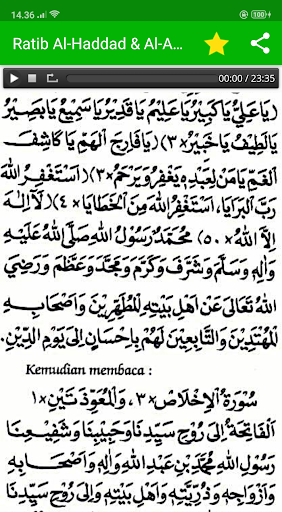 14.36
100
Ratib Al-Haddad & Al-A...
00:00 / 23:35
(يَا عَلِيُّ يَا كَبِيْرُ يَا عَلِيْمُ يَا قَدِيْرُ يَا سَمِيْعُ يَا بَصِيْرُ
يَا لَطِيْفُ يَا خَبِيْرُ×٣) (يَا فَارِجَ الْهَمِّ يَا كَاشِفَ
الْغَمِّ يَا مَنْ لِعَبْدِهِ يَغْفِرُ وَيَرْحَمُ×٣) (اَسْتَغْفِرُ اللهَ
رَبَّ الْبَرَايَا، اَسْتَغْفِرُ اللهَ مِنَ الْخَطَايَا×٤) (لَآ اِلٰهَ
اِلَّا اللهُ×٥٠) مُحَمَّدٌ رَسُوْلُ اللهِ صَلَّى اللهُ عَلَيْهِ
وَاٰلِهِ وَسَلَّمَ وَشَرَّفَ وَكَرَّمَ وَمَجَّدَ وَعَظَّمَ وَرَضِيَ
اللهُ تَعَالَى عَنْ اَهْلِ بَيْتِهِ الْمُطَهَّرِيْنَ وَاَصْحَابِهِ
الْمُهْتَدِيْنَ وَالتَّابِعِيْنَ لَهُمْ بِاِحْسَانٍ اِلَى يَوْمِ الدِّيْنِ.
Kemudian membaca :
سُوْرَةُ الْاِخْلَاصِ×٣، وَالْمُعَوِّذَتَيْنِ×١
اَلْفَاتِحَةُ اِلَى رُوْحِ سَيِّدِنَا وَحَبِيْبِنَا وَشَفِيْعِنَا
رَسُوْلِ اللهِ مُحَمَّدِ بْنِ عَبْدِ اللهِ وَاٰلِهِ وَاَصْحَابِهِ
وَاَزْوَاجِهِ وَذُرِّيَّتِهِ وَاَهْلِ بَيْتِهِ وَاِلَى رُوْحِ سَيِّدِنَا